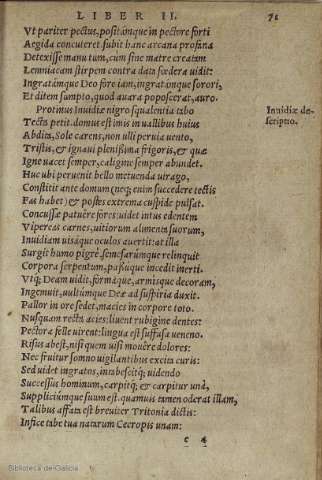 LIBER II.
71
Vt pariter pectus, positámque in pectore forti
Aegida concuteret: subit hanc arcana profana
Detexisse manu tum, cum sine matre creatam
Lemniacam stirpem contra data fœdera uidit:
Ingratámque Deo fore iam, ingratámque sorori,
Et ditem sumpto, quod auara poposcerat, auro.
Protinus Inuidiæ nigro squalentia tabo
Inuidiæ de-
scriptio.
Tecta petit. domus est imis in uallibus huius
Abdita, Sole carens, non ulli peruia uento,
Tristis, & ignaui plenißima frigoris, & quæ
Igne uacet semper, caligine semper abundet.
Huc ubi peruenit bello metuenda uirago,
Constitit ante domum (neq; enim succedere tectis
Fas habet) & postes extrema cuspide pulsat.
Concussæ patuêre fores: uidet intus edentem
Vipereas carnes, uitiorum alimenta suorum,
Inuidiam: uisáque oculos auertit: at illa
Surgit humo pigrè, semesarúmque relinquit
Corpora serpentum, paßuque incedit inerti.
Vtq; Deam uidit, formáque, armísque decoram,
Ingemuit, uultúmque Deæ ad suspiria duxit.
Pallor in ore sedet, macies in corpore toto.
Nusquam recta acies: liuent rubigine dentes:
Pectora felle uirent: lingua est suffusa ueneno.
Risus abest, nisi quem uisi mouêre dolores:
Nec fruitur somno uigilantibus excita curis:
Sed uidet ingratos, intabescitq́; uidendo
Successus hominum, carpitq́; & carpitur unà,
Suppliciúmque suum est. quamuis tamen oderat illam,
Talibus affata est breuiter Tritonia dictis:
Infice tabe tua natarum Cecropis unam:
c 4
Biblioteca de Galicia